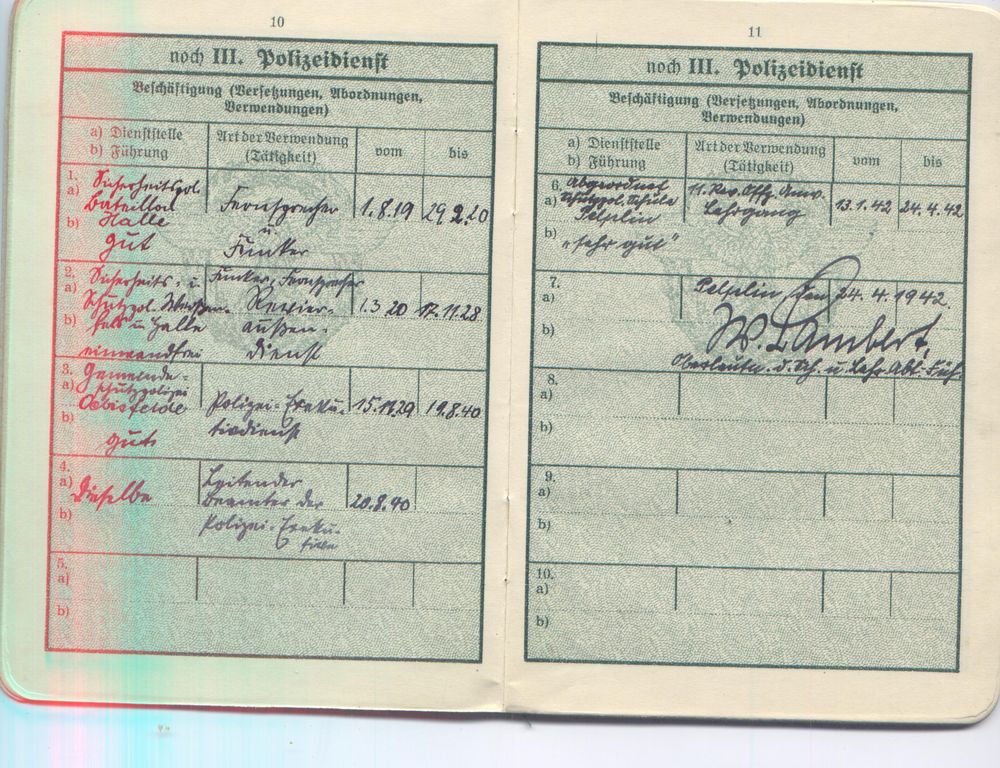 10
noch III. Polizeidienst
Beschäftigung (Versetzungen, Abordnungen,
Verwendungen)
a) Dienststelle
b) Führung
Art der Verwendung
(Tätigkeit)
vom
bis
1.
a) Sicherheitspol.
Bataillon
b) Halle
gut
Fernsprecher
u.
Funker
1.8.19
29.2.20
2.
a) Sicherheits- u.
Schutzpol. Weißen-
b) fels u. Halle
einwandfrei
Funker, Fernsprecher
Revier-
außen-
dienst
1.3 20
17.11.28
3.
a) Gemeinde-
schutzpolizei
Oebisfelde
b)
gut
Polizei-Exeku-
tivdienst
15.11.29
19.8.40
4.
a) Dieselbe
b)
Leitender
Beamter der
Polizei-Exeku-
tive
20.8.40
5.
a)
b)
11
noch III. Polizeidienst
Beschäftigung (Versetzungen, Abordnungen,
Verwendungen)
a) Dienststelle
b) Führung
Art der Verwendung
(Tätigkeit)
vom
bis
6. Abgeordnet
a) Schutzpol. Schule
Pelplin
b) "sehr gut"
11. Rev. Offz. Anw.
Lehrgang
13.1.42
24.4.42
7.
a)
b)
Pelplin, den 24.4.1942.
W. Lambert,
Oberleutn. d. Sch. u. Lehr Abt. Füh.
8.
a)
b)
9.
a)
b)
10.
a)
b)